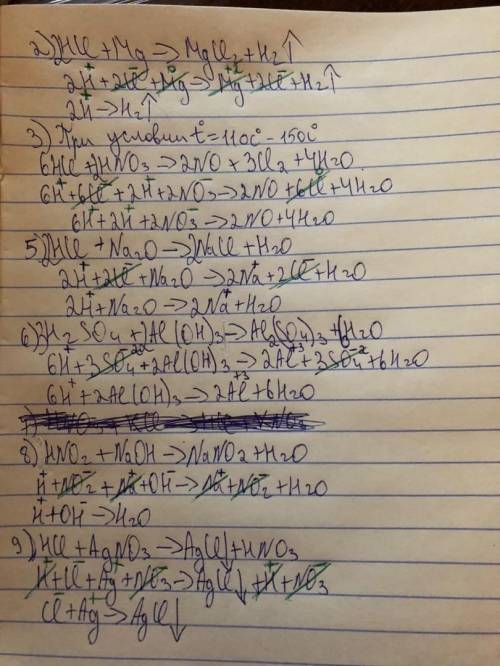 2) 2HCl + Mg → MgCl₂ + H₂↑
2H⁺ + 2Cl⁻ + Mg⁰ → Mg⁺² + 2Cl⁻ + H₂↑
2H⁺ → H₂↑
3) При условии t° = 110c° - 150c°
6HCl + 2HNO₃ → 2NO + 3Cl₂ + 4H₂O
6H⁺ + 6Cl⁻ + 2H⁺ + 2NO₃⁻ → 2NO + 6Cl⁰ + 4H₂O
6H⁺ + 2H⁺ + 2NO₃⁻ → 2NO + 4H₂O
5) 2HCl + Na₂O → 2NaCl + H₂O
2H⁺ + 2Cl⁻ + Na₂O → 2Na⁺ + 2Cl⁻ + H₂O
2H⁺ + Na₂O → 2Na⁺ + H₂O
6) 3H₂SO₄ + 2Al(OH)₃ → Al₂(SO₄)₃ + 6H₂O
6H⁺ + 3SO₄⁻² + 2Al(OH)₃ → 2Al⁺³ + 3SO₄⁻² + 6H₂O
6H⁺ + 2Al(OH)₃ → 2Al⁺³ + 6H₂O
8) HNO₂ + NaOH → NaNO₂ + H₂O
H⁺ + NO₂⁻ + Na⁺ + OH⁻ → Na⁺ + NO₂⁻ + H₂O
H⁺ + OH⁻ → H₂O
9) HCl + AgNO₃ → AgCl↓ + HNO₃
H⁺ + Cl⁻ + Ag⁺ + NO₃⁻ → AgCl↓ + H⁺ + NO₃⁻
Cl⁻ + Ag⁺ → AgCl↓